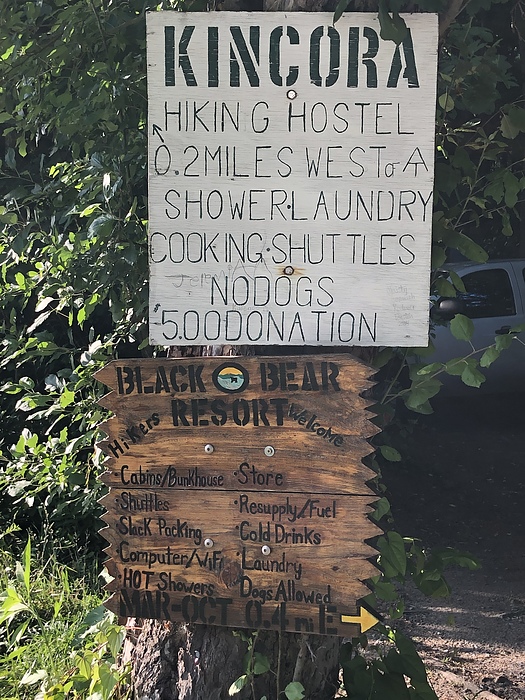 KINCORA
HIKING HOSTEL
0.2MILES WEST of A
SHOWER·LAUNDRY
COOKING·SHUTTLES
NODOGS
5.00DONATION
BLACK BEAR
RESORT
Hikers Welcome
·Cabins/Bunkhouse ·Store
·Shuttles ·Resupply/Fuel
·Slack Packing ·Cold Drinks
·Computer/WiFi ·Laundry
·HOT Showers Dogs Allowed
MAR-OCT 0.4 mi E